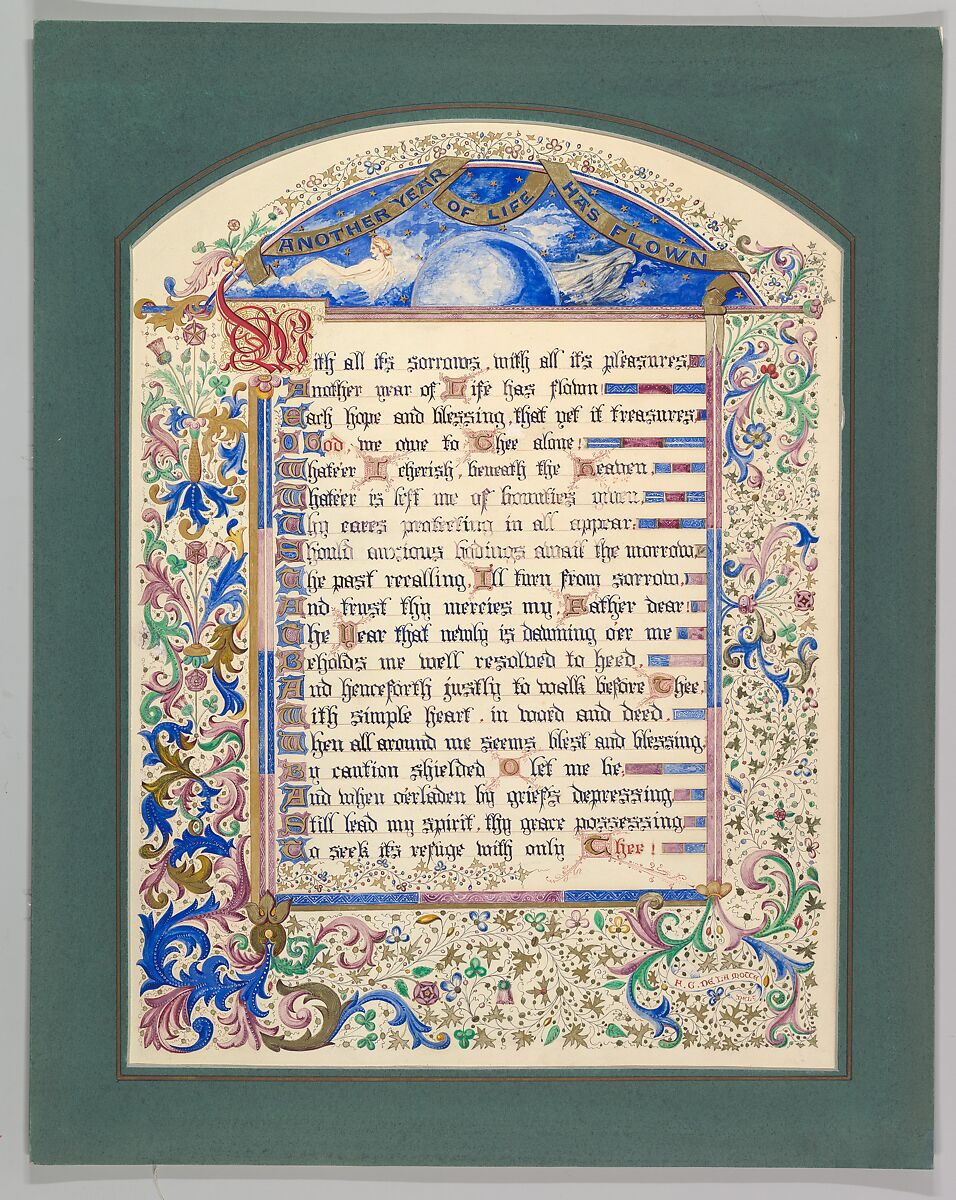 ANOTHER YEAR OF LIFE HAS FLOWN
With all its sorrows, with all its pleasures,
Another year of Life has flown
Each hope and blessing, that yet it treasures,
O God, we owe to Thee alone!
Whate'er I cherish, beneath the Heaven,
Whate'er is left me of bounties given,
Thy cares protecting in all appear:
Should anxious bodings await the morrow,
The past recalling, I'll turn from sorrow,
And trust thy mercies my Father dear!
The Year that newly is dawning o'er me
Beholds me well resolved to heed,
And henceforth justly to walk before Thee,
With simple heart, in word and deed.
When all around me seems blest and blessing,
By caution shielded O let me be.
And when o'erladen by griefs depressing,
Still lead my spirit, thy grace possessing
To seek its refuge with only Thee!
F. G. DE LA MOTTE